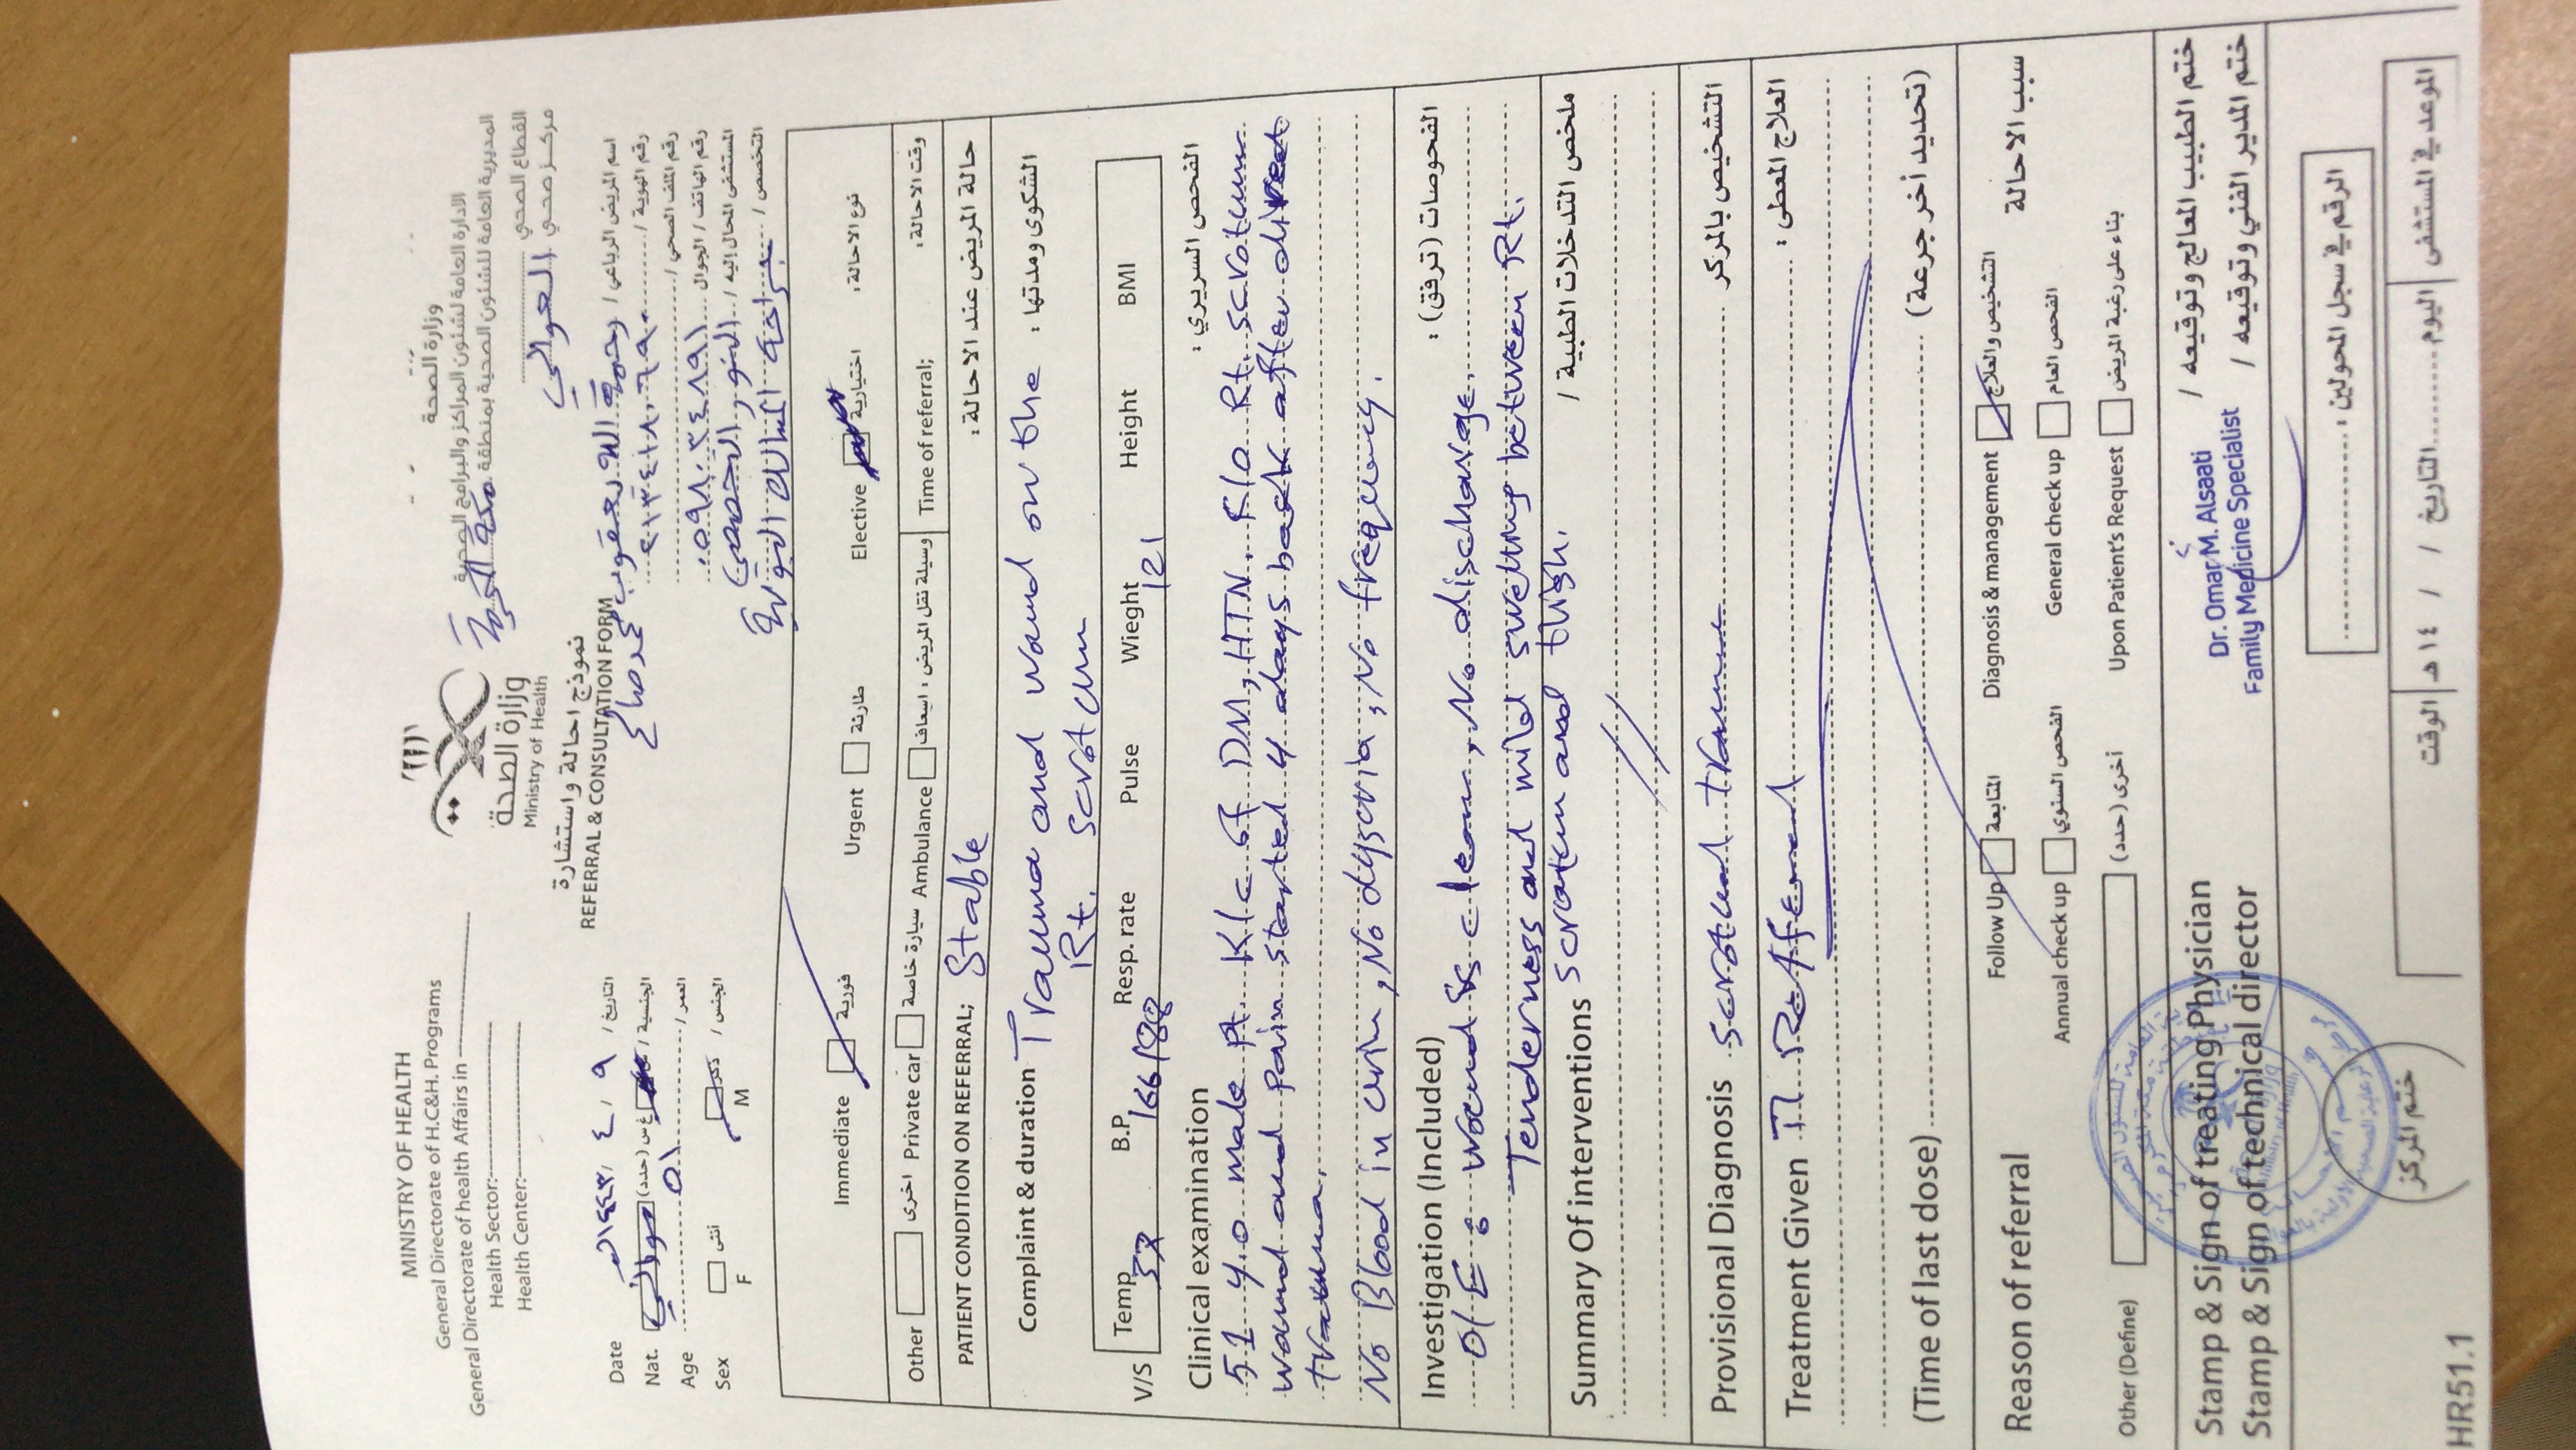 MINISTRY OF HEALTH
General Directorate of H.C&H. Programs
General Directorate of health Affairs in
Health Sector:
Health Center:
وزارة الصحة
Ministry of Health
نموذج احالة واستشارة
REFERRAL & CONSULTATION FORM
وزارة الصحة
الادارة العامة لشئون المراكز والبرامج الصحية
المديرية العامة للشئون الصحية بمنطقة مكة المكرمة
القطاع الصحي
مركز صحي العوالي
Date ٩ / ٤ / ١٤٤٣هـ التاريخ /
Nat. غ س (حدد) الجنسية /
Age ٥١ العمر /
Sex أنثى ذكر الجنس /
F M
اسم المريض الرباعي / رحمة الله يعقوب محمد صالح
رقم الهوية / ٢١٣٤١٨٠٦٩٠
رقم الملف الصحي /
رقم الهاتف / الجوال ٠٥٩٨٠٣٤٨٩١
المستشفى المحال إليه / النور التخصصي
التخصص / جراحة المسالك البولية
Immediate فورية Urgent طارئة Elective اختيارية نوع الاحالة :
Other اخرى Private car سيارة خاصة Ambulance وسيلة نقل المريض : اسعاف Time of referral; وقت الاحالة :
PATIENT CONDITION ON REFERRAL; Stable حالة المريض عند الاحالة :
Complaint & duration Trauma and wound on the الشكوى ومدتها :
Rt. scrotum
V/S Temp 37 B.P 166/88 Resp. rate Pulse Wieght 121 Height BMI
Clinical examination الفحص السريري :
51 y.o male pt. K/c of DM, HTN. K/o Rt. scrotum
wound and pain started 4 days back after direct
trauma.
No Blood in urin, No dysuria, No frequency.
Investigation (Included) الفحوصات (ترفق) :
O/E : wound is clean, No discharge.
Tenderness and mild swelling between Rt.
scrotum and thigh.
Summary Of interventions ملخص التدخلات الطبية /
Provisional Diagnosis scrotual trauma التشخيص بالمركز
Treatment Given العلاج المعطى :
(Time of last dose) (تحديد أخر جرعة)
Reason of referral Follow Up المتابعة Diagnosis & management التشخيص والعلاج سبب الاحالة
Annual check up الفحص السنوي General check up الفحص العام
Other (Define) أخرى (حدد) Upon Patient's Request بناء على رغبة المريض
Stamp & Sign of treating Physician ختم الطبيب المعالج وتوقيعه /
Stamp & Sign of technical director ختم المدير الفني وتوقيعه /
Dr. Omar M. Alsaati
Family Medicine Specialist
الرقم في سجل المحولين :
ختم المركز
الموعد في المستشفى اليوم التاريخ / / ١٤ هـ الوقت
HR51.1